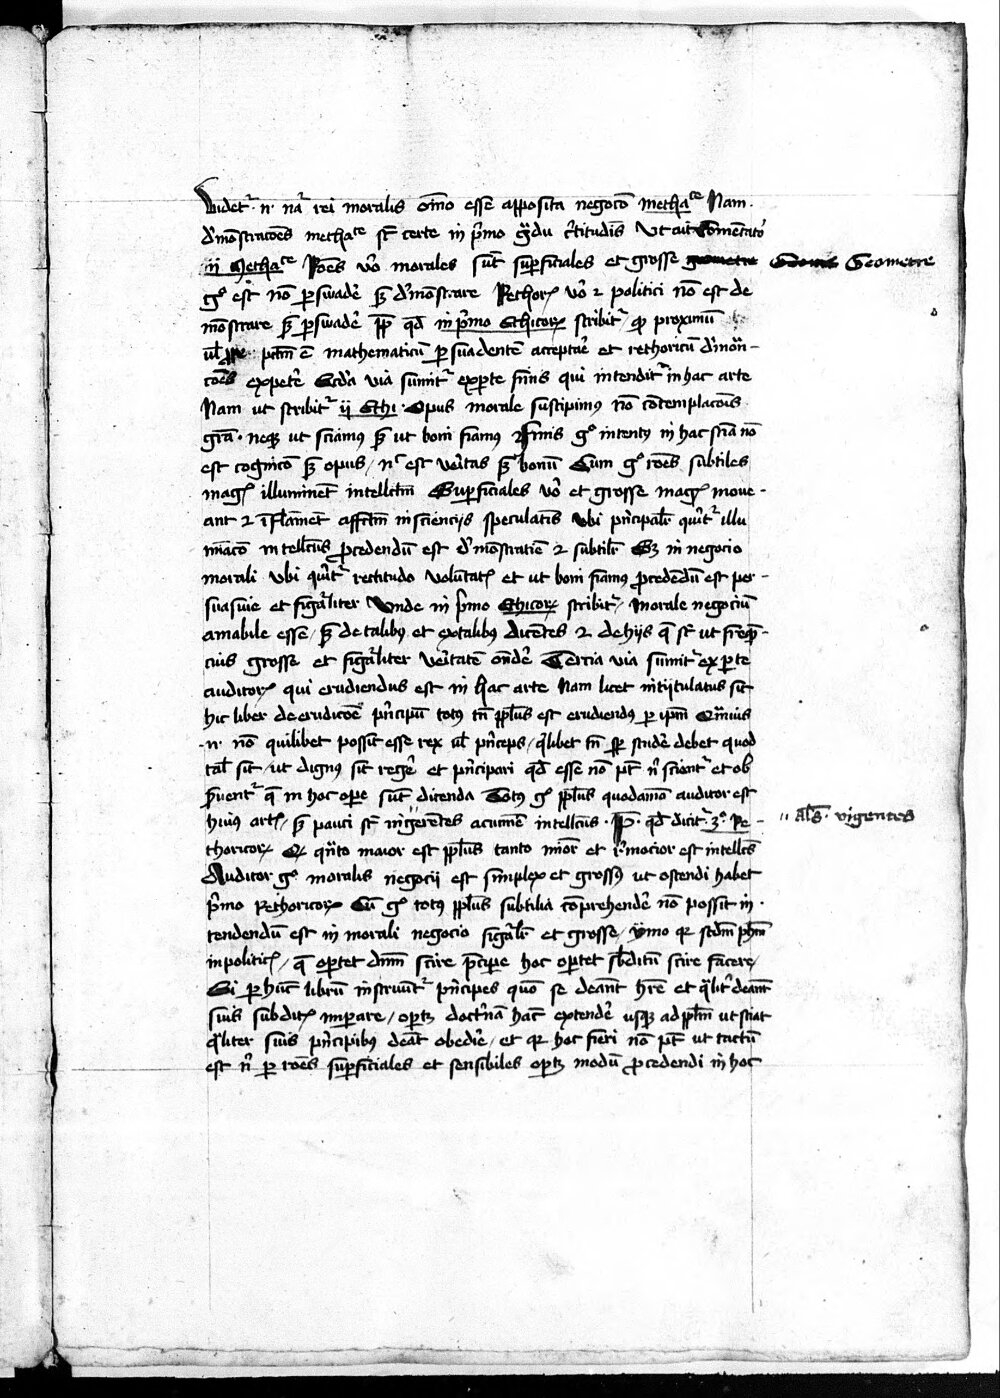 Videtᷣ .n. naᷓ rei moralis om̅o esse apposita negoc̅o methaᶜᵉ Nam
dm̅ostrac̅oes methaᶜᵉ st̅ certe in pͥmo gᷓdu ctitudis̅ Ut ait Com̅entatoᷣ
ij Methaᶜᵉ Ro̅es vo̅ morales sut̅ supficiales et grosse Geometre
gͦ est no̅ pswade̅ sꝫ dm̅ostrare Rethoꝝ vo̅ ⁊ politici no̅ est de
mo̅strare sꝫ pswade̅ pp̅ qd̅ in pͥmo Ethicoꝝ scribitᷣ ꝙ proximu̅
ul̅ pctm̅ e̅ mathematicu̅ psuadente̅ acceptae̅ et rethoricu̅ dm̅on̅
co̅es expete̅ Scda̅ via sumitᷣ exꝑte finis qui intenditᷣ in hac arte
Nam ut scribitᷣ ij Ethi. Opus morale suscipimꝰ no̅ co̅templaco̅is
gra̅. neqꝫ ut sciamꝰ sꝫ ut boni fiamus Finis gͦ intentꝰ in hac scia̅ no̅
est cognico̅ sꝫ opus / nᶜ est veritas sꝫ bonu̅ Cum gͦ ro̅es subtiles
magꝭ illuminet̅ intellectm̅ Superficiales vo̅ et grosse magꝭ moue
ant ⁊ i̅flam̅et affctm̅ in sciencijs speculatis̅ ubi pͥncipalr̅ queritᷣ illu
minaco̅ intellectus ꝓcedendu̅ est dm̅ostratie̅ ⁊ subtilr̅ Sꝫ in negocio
morali ubi queritᷣ rectitudo voluntatꝭ et ut boni fiamus ꝓcedendu̅ est per
suasiue et figᷓliter Unde in pͥmo Ethicoꝝ scribitᷣ / Morale negociu̅
amabile esse / sꝫ de talibus et ex talibus dicentes ⁊ de hijs q̅ st̅ ut freqꝫ̅
cius grosse et figᷓliter veritate̅ onde̅ Tercia via sumitᷣ ex ꝑte
auditoꝝ qui erudiendus est in hac arte Nam licet intytulatus sit
hic liber de erudico̅e pͥncipu̅ totus tn̅ pplu̅s est erudiendꝰ ꝑ ip̅m Qm̅uis
.n. no̅ quilibet possit esse rex ul̅ pͥnceps / qͥlibet tn̅ sꝑ stude̅ debet quod
tal̅ sit / ut dignꝰ sit rege̅ et pͥncipari qd̅ esse no̅ pt̅ ni̅ sciantᷣ et ob
ꝑuentᷣ q̅ in hoc opere sut̅ dicenda Totꝰ gͦ pplu̅s quodamo̅ auditor est
huius artꝭ / sꝫ pauci st̅ ingerentes acume̅ intellectus. P. qd̅ dicitᷣ 3ͦ Re
als̅. vigentes
thoricoꝝ Q qn̅to maior est pplu̅s tanto mi̅or et rͤmocior est intellcs̅
Auditor gͦ moralis negocij est simplex et grossꝰ ut ostendi habet
pͥmo Rethoricoꝝ Cu̅ gͦ totꝰ pplu̅s subtilia co̅prehende̅ no̅ possit in
tendendu̅ est in morali negocio figᷓlr̅ et grosse / ymo qꝛ scdm̅ phm̅
in politicꝭ / q̅ oportet dnm̅ scire pͥncipe̅ hoc oportet sbditu̅ scire facere /
Si per hu̅c libru̅ instruntᷣ pͥncipes quo̅ se deant̅ hr̅e et qͣlitᷣ deant̅
suis subditꝭ imperare / oportꝫ doctrina̅ hac̅ extende̅ usqꝫ ad pplm̅ ut sciat
qͣliter suis pͥncipibus deat̅ obedie̅ / et qꝛ hoc fieri no̅ pt̅ ut tactu̅
est ni̅ per ro̅es suꝑficiales et sensibiles oportꝫ modu̅ ꝓcedendi in hoc